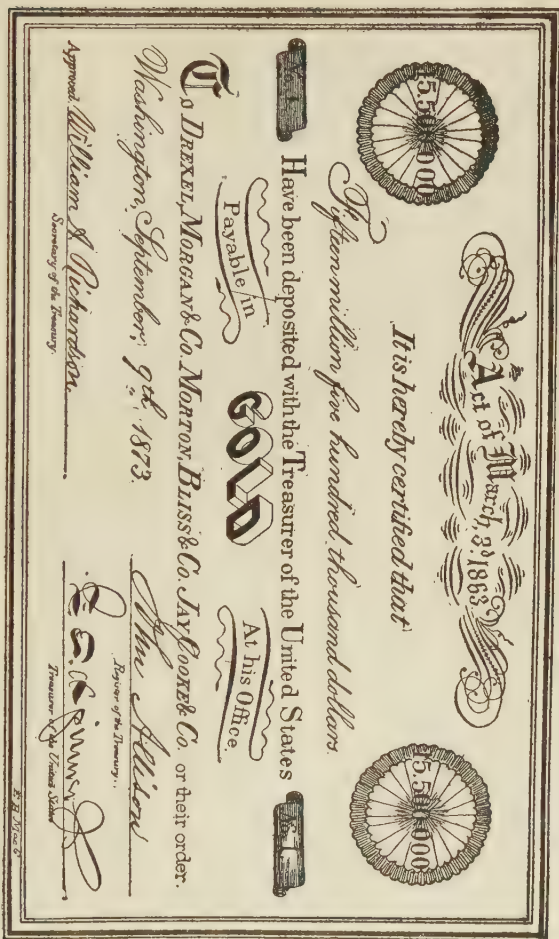 Act of March, 3d. 1863.
15.500.000
15.500.000
It is hereby certified that
Fifteen million five hundred, thousand dollars.
No. 1.
Have been deposited with the Treasurer of the United States
No. 1.
Payable in
GOLD
At his Office.
To DREXEL, MORGAN & Co. MORTON, BLISS & Co. JAY COOKE & Co. or their order.
Washington, September, 9th, 1873.
John Allison
Register of the Treasury.
Approved. William A Richardson
Secretary of the Treasury.
Treasurer of the United States